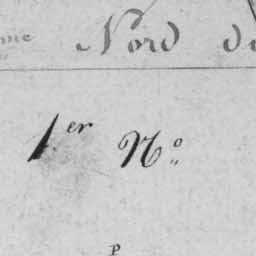 me Nord d
1.er N.o
P